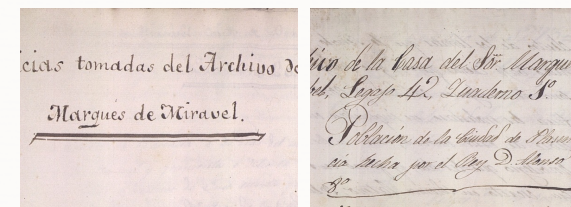 cias tomadas del Archivo de
Marques de Miravel.
ivo de la Casa del Sor. Marqu
bel, Legajo 42, Quaderno 1o.
Poblacion de la Ciudad de Plasen
cia hecha por el Rey D. Alonso
8o.